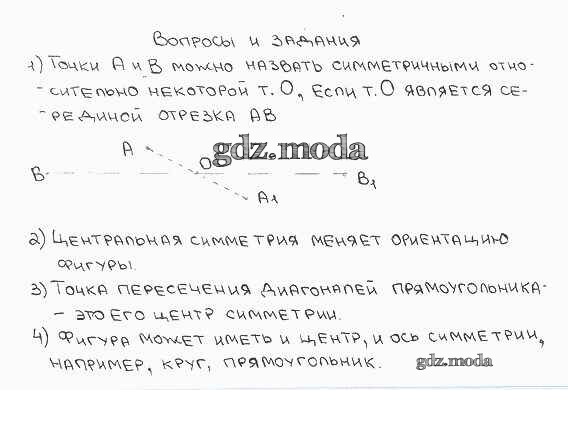 Вопросы и задания
1) Точки А и В можно назвать симметричными отно-
-сительно некоторой т. О, если т. О является се-
-рединой отрезка АВ
А
О
gdz.moda
В
В1
А1
2) Центральная симметрия меняет ориентацию
фигуры.
3) Точка пересечения диагоналей прямоугольника-
- это его центр симметрии.
4) Фигура может иметь и центр, и ось симметрии,
например, круг, прямоугольник.
gdz.moda